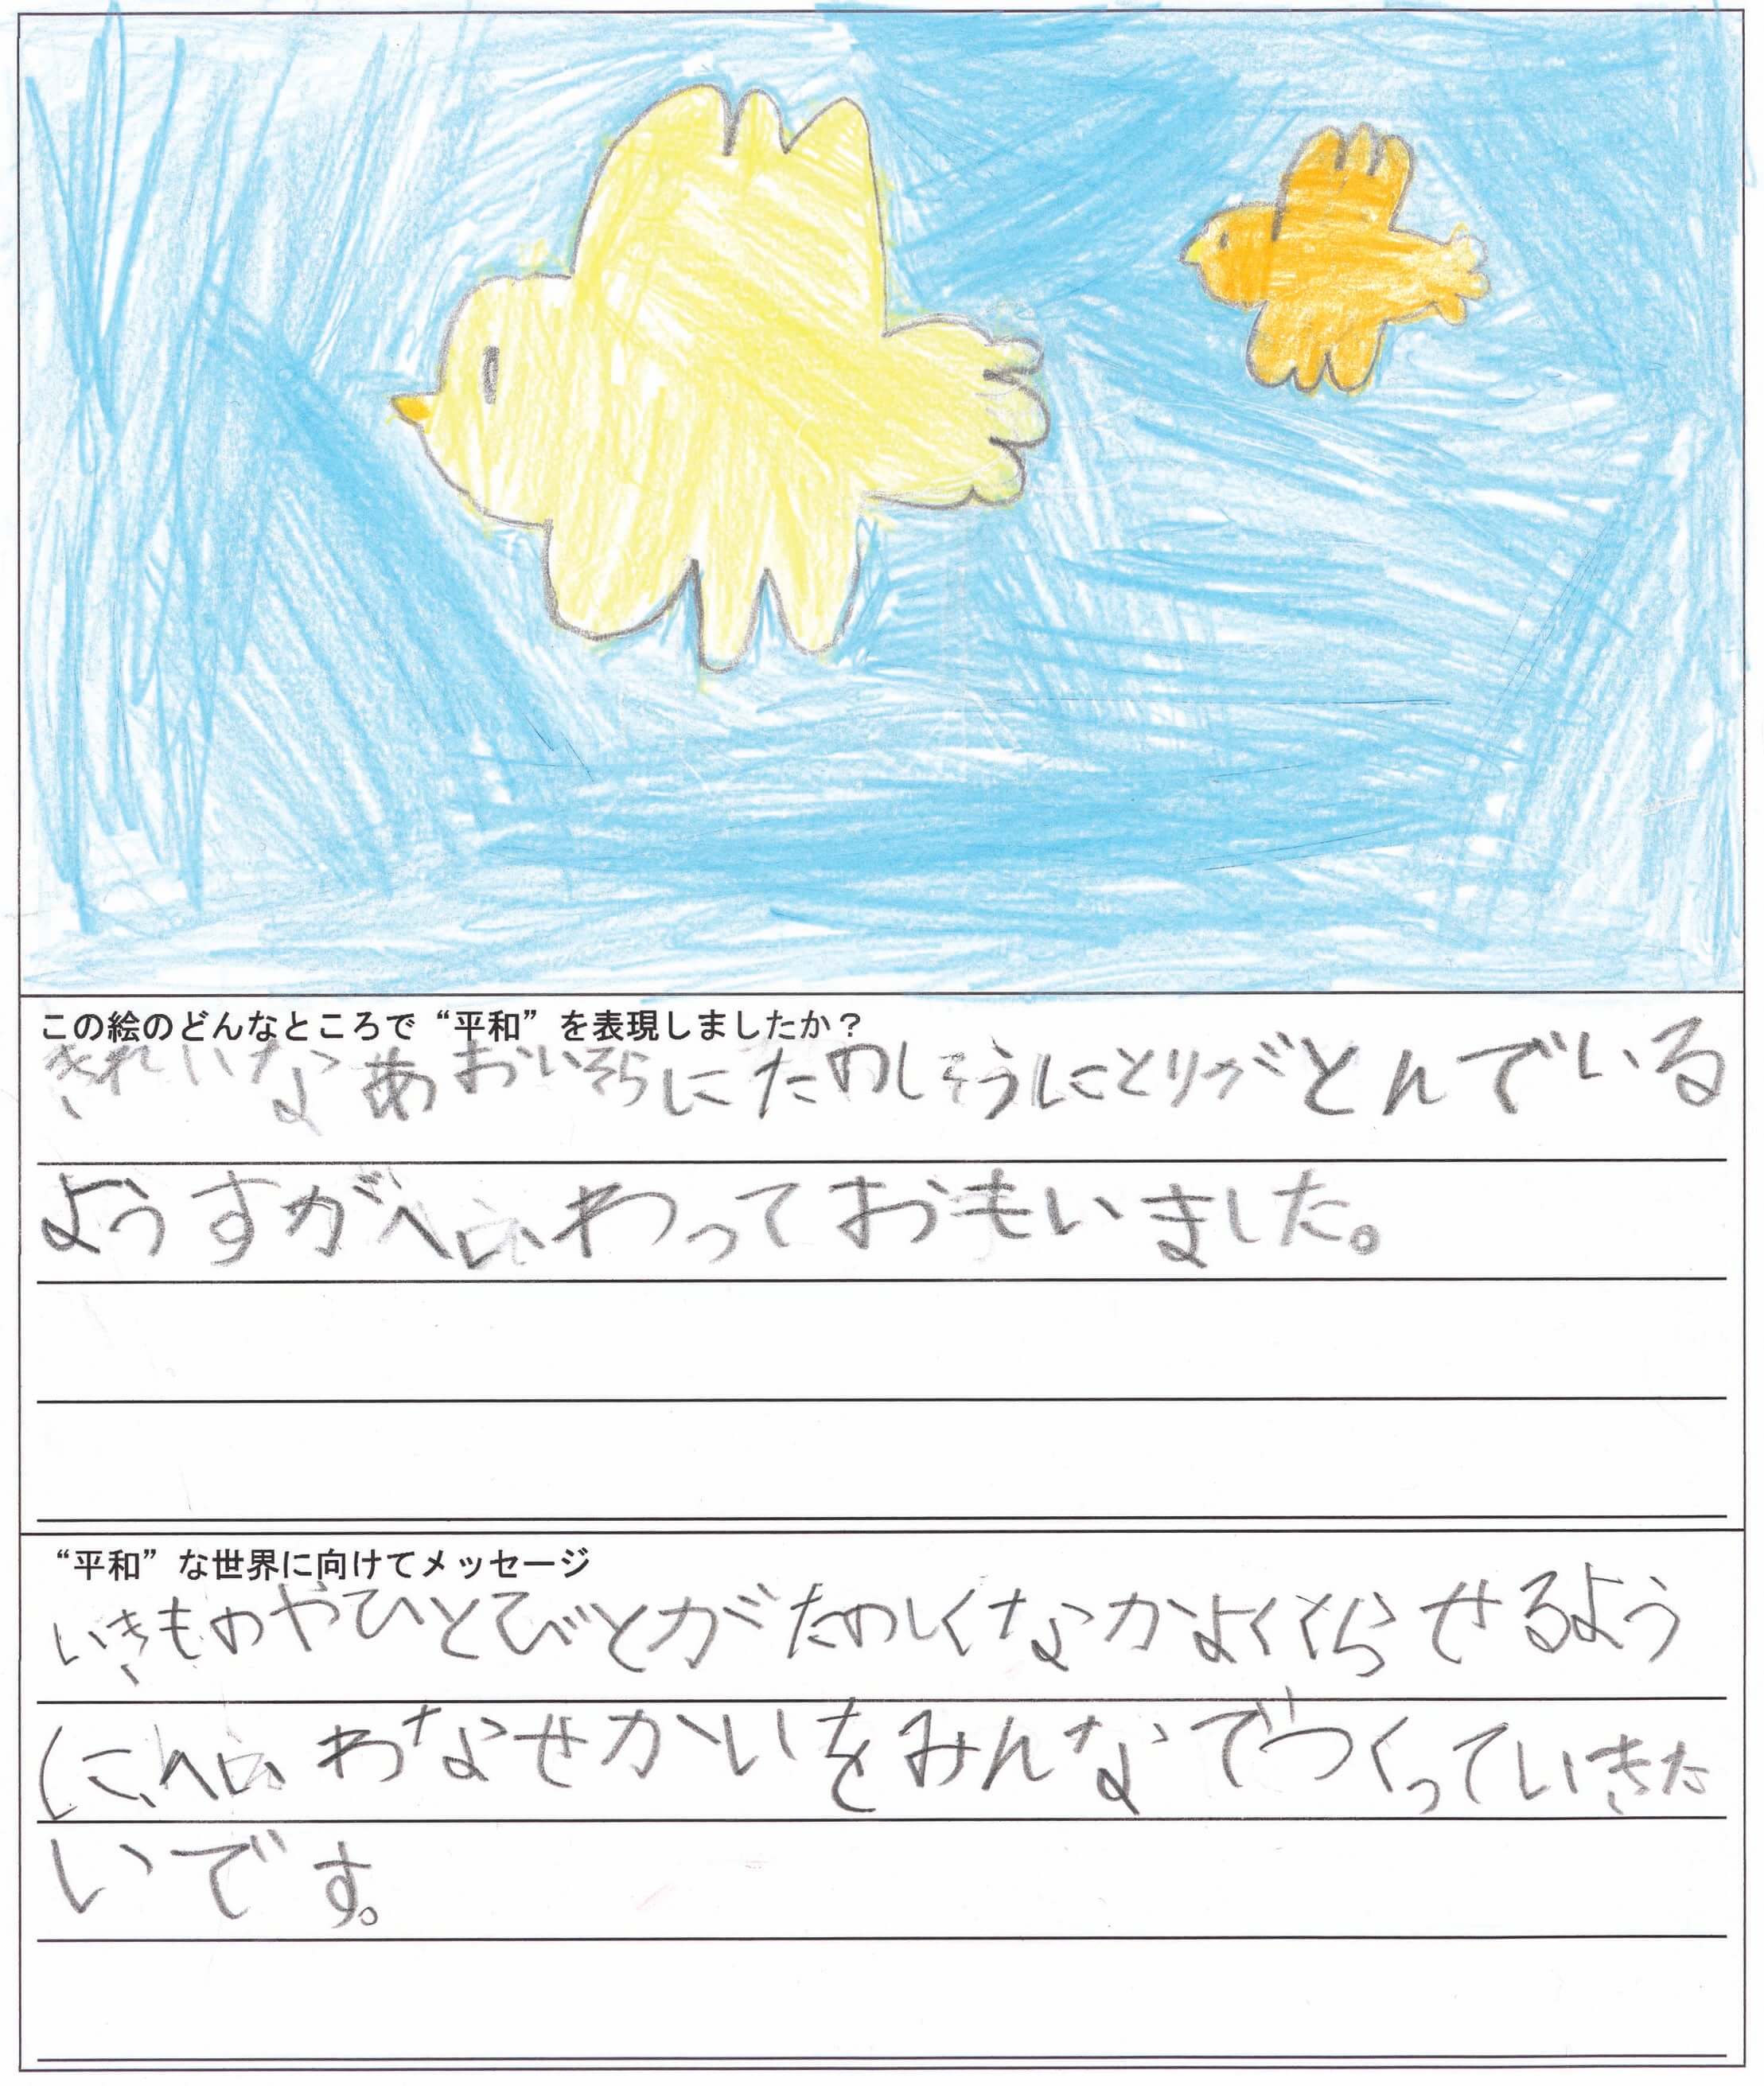 この絵のどんなところで“平和”を表現しましたか？
きれいなあおいそらにたのしそうにとりがとんでいる
ようすがへいわっておもいました。
“平和”な世界に向けてメッセージ
いきものやひとびとがたのしくなかよくくらせるよう
に、へいわなせかいをみんなでつくっていきた
いです。